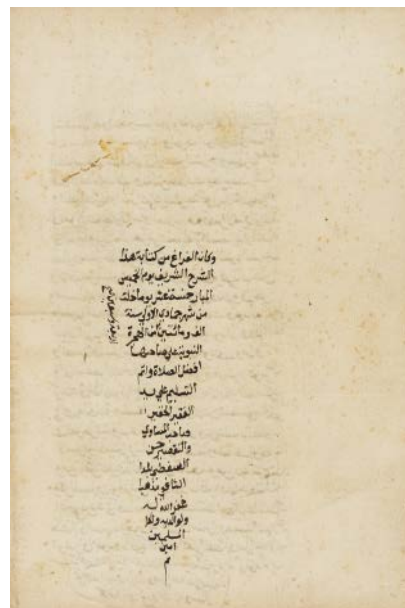 وكان الفراغ من كتابة هذا
الشرح الشريف يوم الخميس
المبارك خمسة عشر يوما خلت
من شهر جمادي الاولي سنة
الف ومائتين من الهجرة
النبوية علي صاحبها
افضل الصلاة واتم
التسليم علي يد
الفقير الحقير
صاحب المساوي
والتقصير حسن
الصفطي بلدا
الشافعي مذهبا
غفر الله له
ولوالديه ولكل
المسلمين
امين
م